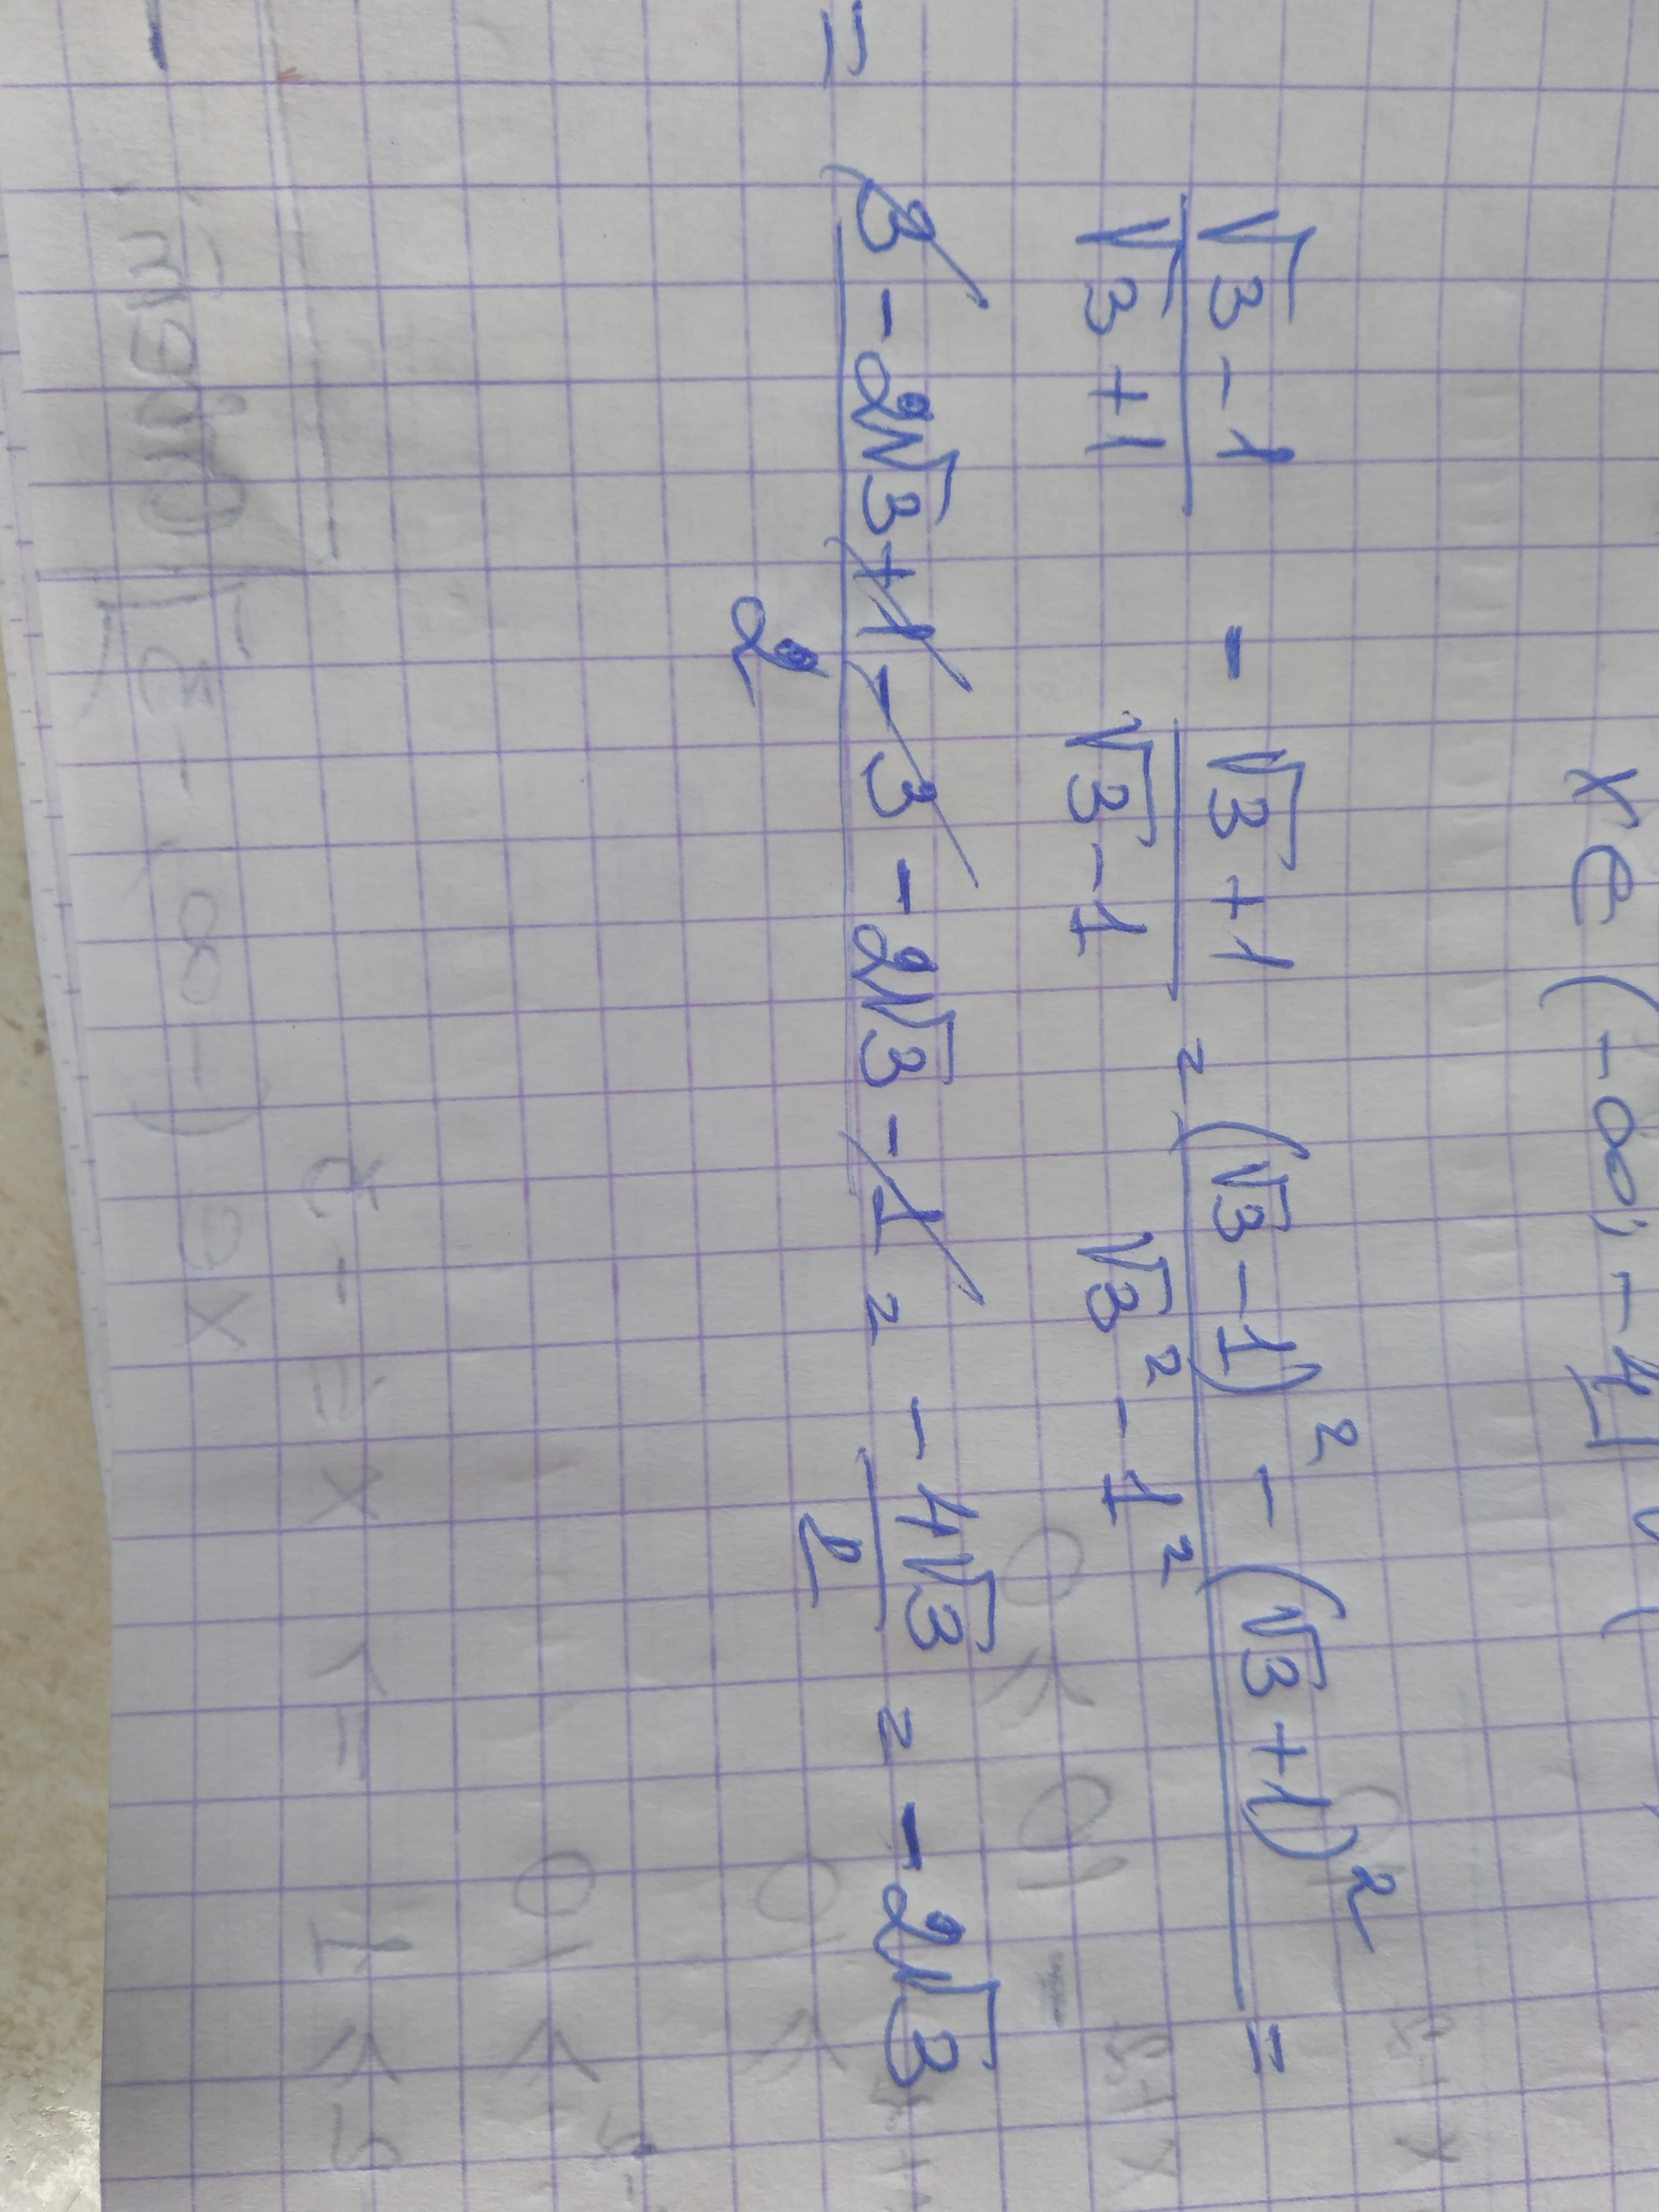 x ∈ (-∞; -4]
(√3 - 1)/(√3 + 1) - (√3 + 1)/(√3 - 1) = ((√3 - 1)² - (√3 + 1)²)/(√3² - 1²) =
= (3 - 2√3 + 1 - 3 - 2√3 - 1)/2 = (-4√3)/2 = -2√3